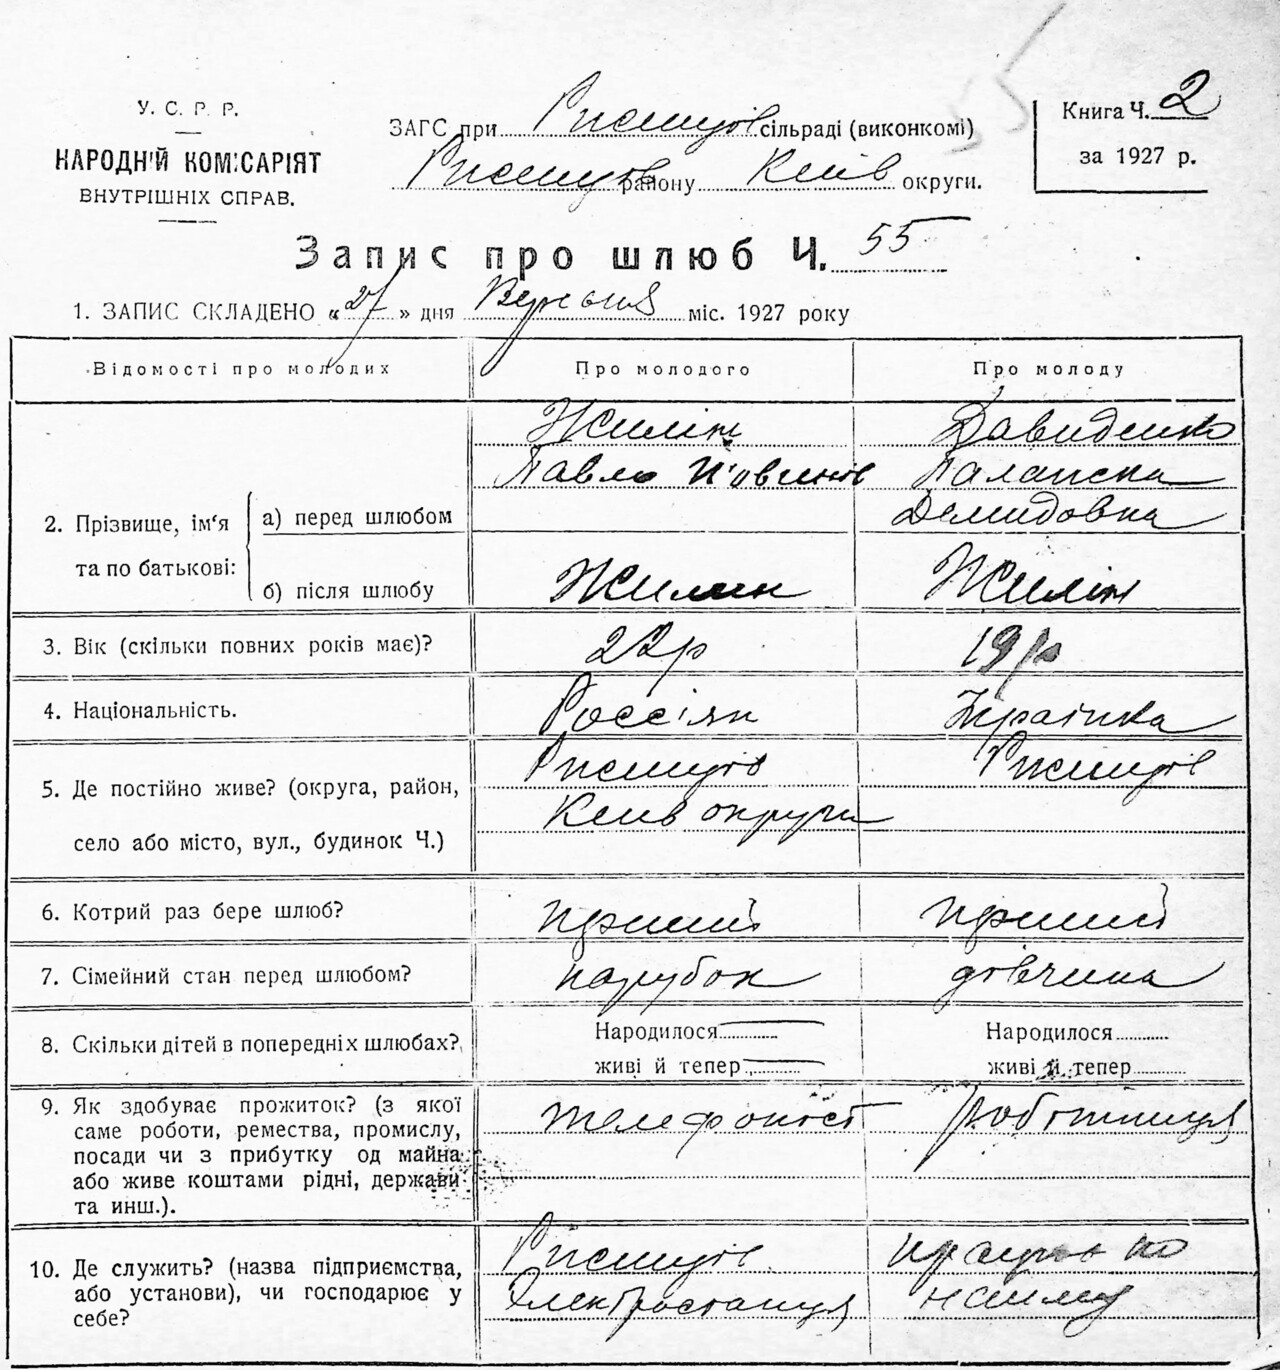 У. С. Р. Р.
НАРОДНІЙ КОМІСАРІЯТ
ВНУТРІШНІХ СПРАВ.
ЗАГС при Ржищів сільраді (виконкомі)
Ржищів району Київ округи.
Книга Ч. 2
за 1927 р.
Запис про шлюб Ч. 55
1. ЗАПИС СКЛАДЕНО „27" дня Вересня міс. 1927 року
Відомості про молодих Про молодого Про молоду
Жилін Давиденко
Павло Палажка
Демидовна
2. Прізвище, ім'я та по батькові:
а) перед шлюбом
б) після шлюбу Жилин Жилін
3. Вік (скільки повних років має)? 22р 19р
4. Національність. Россіян Українка
5. Де постійно живе? (округа, район, Ржищів Ржищів
село або місто, вул., будинок Ч.) Київ округи
6. Котрий раз бере шлюб? перший перший
7. Сімейний стан перед шлюбом? парубок дівчина
8. Скільки дітей в попередніх шлюбах? Народилося Народилося
живі й тепер живі й тепер
9. Як здобуває прожиток? (з якої телефоніст робітниця
саме роботи, ремества, промислу,
посади чи з прибутку од майна
або живе коштами рідні, держави
та инш.).
10. Де служить? (назва підприємства, Ржищів працює по
або установи), чи господарює у Електростанція найму
себе?